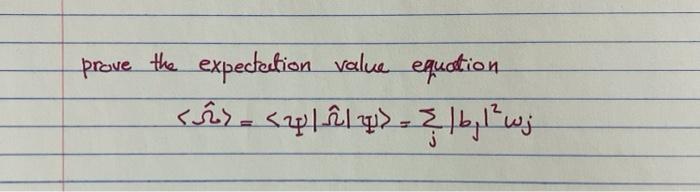 prove the expectation value equation
<Ω̂> = <Ψ|Ω̂|Ψ> = Σ_j |b_j|² ω_j